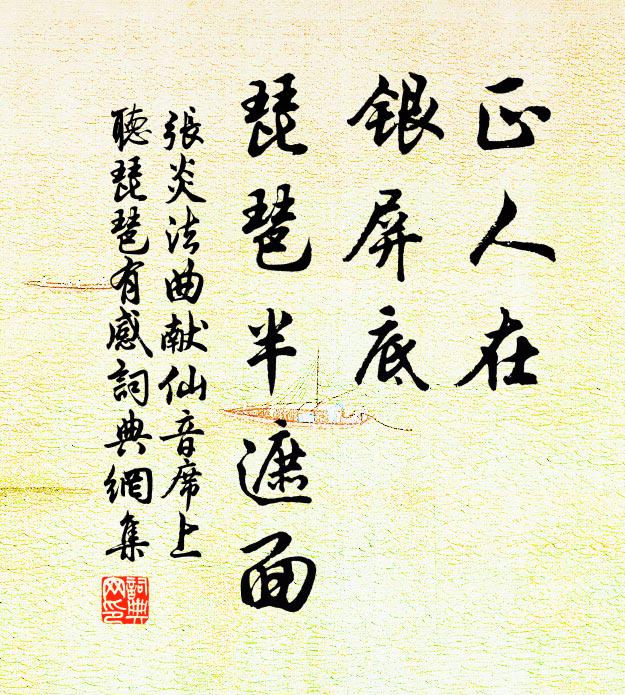 正人在
銀屏底
琵琶半遮面
張炎法曲献仙音席上
聽琵琶有感詞典網集
詞典
网印